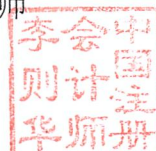 师
中国注册
会计师
李则华